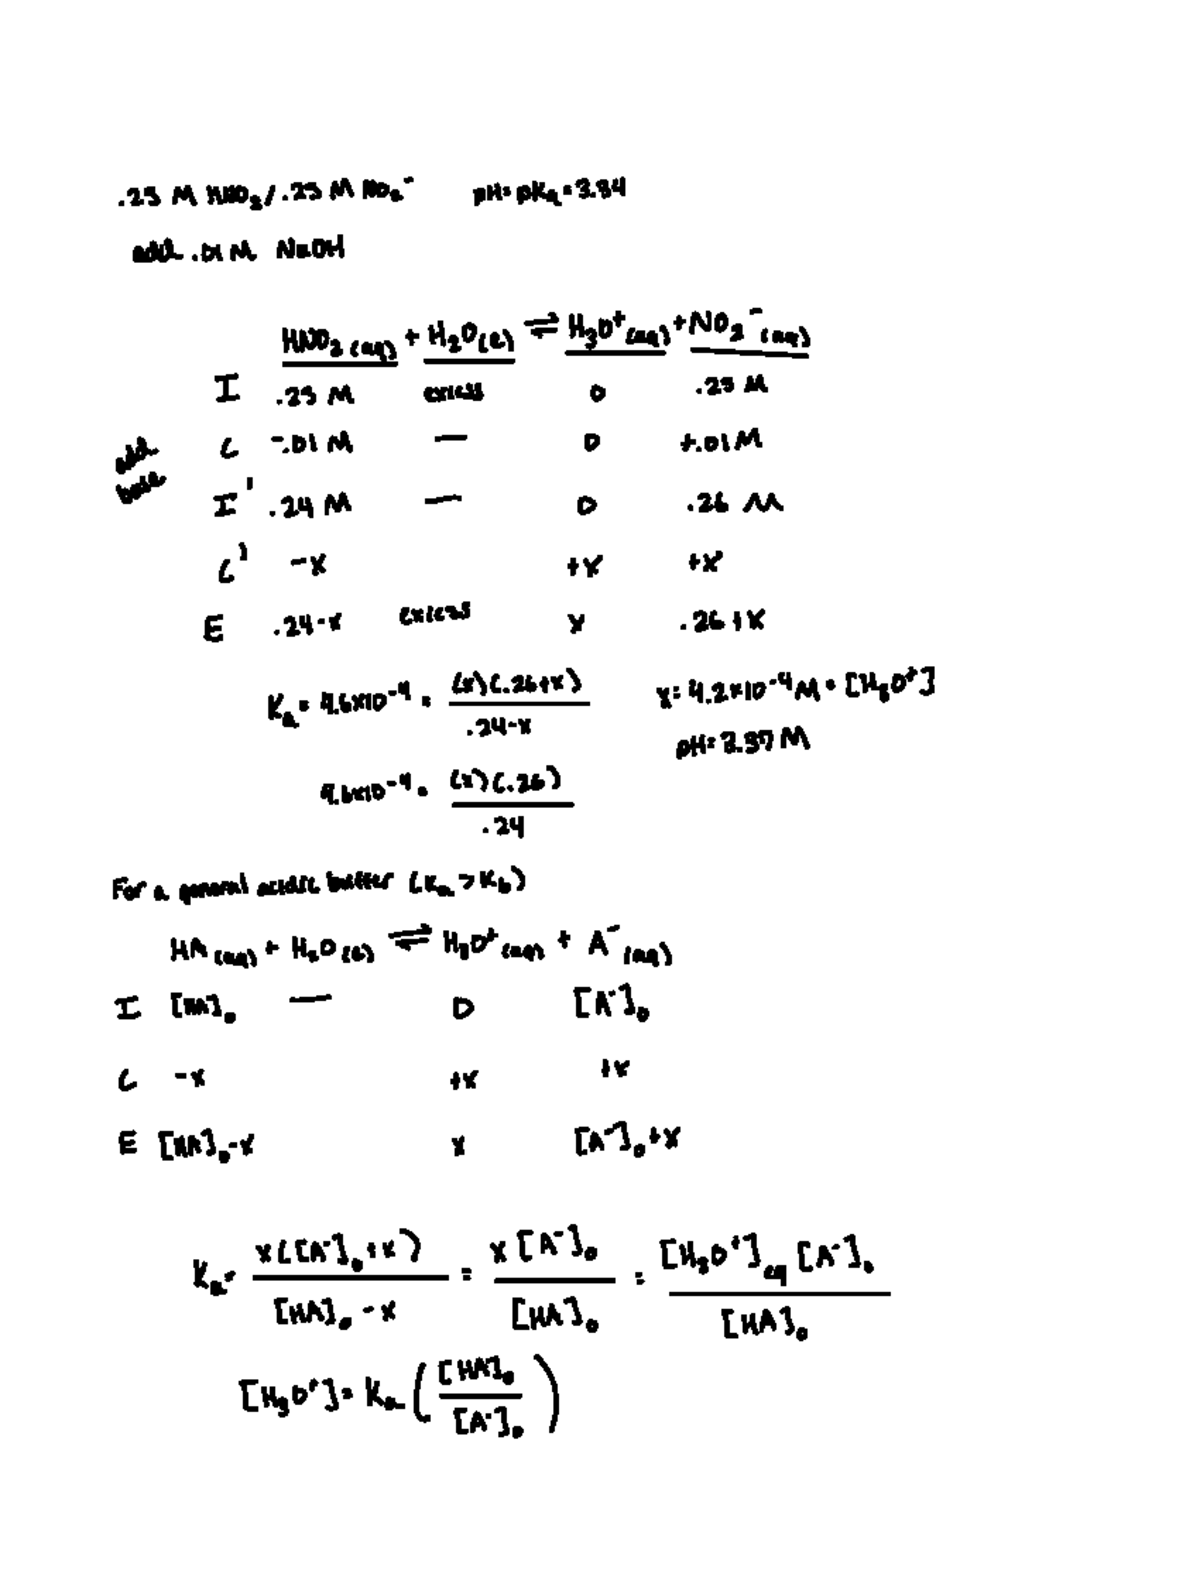 .25 M HNO₂/.25 M NO₂⁻ pH=pKₐ=3.34
add .01 M NaOH
HNO₂(aq) + H₂O(l) ⇌ H₃O⁺(aq) + NO₂⁻(aq)
I .25 M excess 0 .25 M
add base
C -.01 M — 0 +.01 M
I' .24 M — 0 .26 M
C' -x +x +x
E .24-x excess x .26+x
Kₐ = 4.6x10⁻⁴ = (x)(.26+x) / .24-x x = 4.2x10⁻⁴ M = [H₃O⁺]
pH = 3.37 M
4.6x10⁻⁴ = (x)(.26) / .24
For a general acidic buffer (Kₐ > K_b)
HA(aq) + H₂O(l) ⇌ H₃O⁺(aq) + A⁻(aq)
I [HA]₀ — 0 [A⁻]₀
C -x +x +x
E [HA]₀-x x [A⁻]₀+x
Kₐ = x([A⁻]₀+x) / [HA]₀ - x = x[A⁻]₀ / [HA]₀ = [H₃O⁺]eq [A⁻]₀ / [HA]₀
[H₃O⁺] = Kₐ ([HA]₀ / [A⁻]₀)